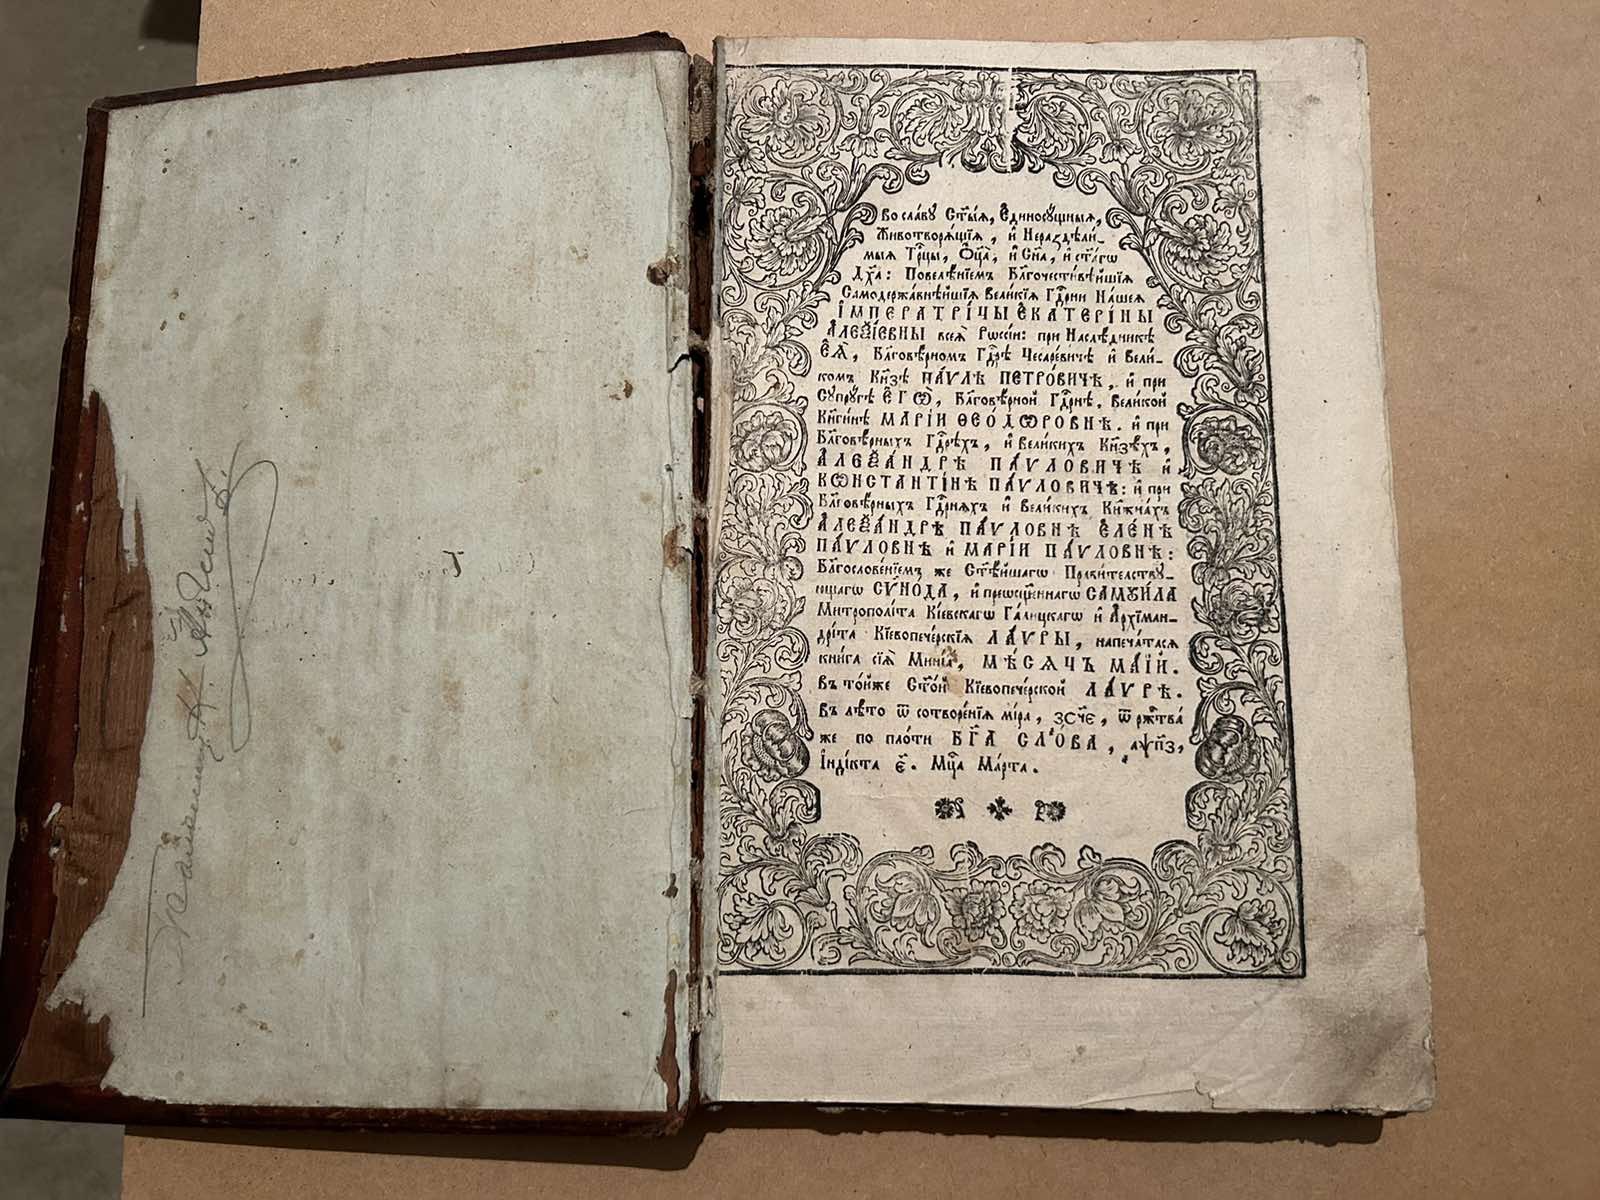 Во сла́вꙋ Ст҃ы́ѧ, Є҆диносꙋ́щныѧ,
Животворѧ́щїѧ, и҆ Нераздѣли́-
мыѧ Трⷪ҇цы, Ѻ҆ц҃а̀, и҆ Сн҃а, и҆ ст҃а́гѡ
Дх҃а: Повелѣ́нїемъ Бл҃гочести́вѣйшїѧ
Самодержа́внѣйшїѧ Вели́кїѧ Гдⷭ҇рни На́шеѧ
І҆МПЕРАТРІ́ЦЫ Є҆КАТЕРІ́НЫ
А҆ЛЕѮІ́ЕВНЫ всеѧ̀ Рѡссі́и: при Наслѣ́дникѣ
Є҆Ѧ̀, Бл҃говѣ́рномъ Гдⷭ҇рѣ Цесаре́вичѣ и҆ Вели́-
комъ Кн҃зѣ ПА́ѴЛѢ ПЕТРО́ВИЧѢ, и҆ при
Сꙋпрꙋ́гѣ Є҆ГѠ̀, Бл҃говѣ́рной Гдⷭ҇рнѣ, Вели́кой
Кнѧги́нѣ МАРІ́И ѲЕО́ДѠРОВНѢ. и҆ при
Бл҃говѣ́рныхъ Гдⷭ҇рѣхъ, и҆ Вели́кихъ Кн҃зѣ́хъ,
А҆ЛЕѮА́НДРѢ ПА́ѴЛОВИЧѢ и҆
КѠНСТАНТІ́НѢ ПА́ѴЛОВИЧѢ: и҆ при
Бл҃говѣ́рныхъ Гдⷭ҇рнѧхъ и҆ Вели́кихъ Кн҃жнахъ
А҆ЛЕѮА́НДРѢ ПА́ѴЛОВНѢ Є҆ЛЕ́НѢ
ПА́ѴЛОВНѢ и҆ МАРІ́И ПА́ѴЛОВНѢ:
Бл҃гослове́нїемъ же Ст҃ѣ́йшагѡ Прави́телствꙋ-
ющагѡ СѴНО́ДА, и҆ прეѡсщ҃е́ннагѡ САМꙊИ́ЛА
Митрополі́та Кі́евскагѡ Га́лицкагѡ и҆ А҆рхїман-
дрі́та Кїевопече́рскїѧ ЛА́ѴРЫ, напеча́тасѧ
кни́га сїѧ̀ Мині́а, МѢ́СѦЦЪ МА́ІЙ.
въ то́йже Ст҃о́й Кїевопече́рской ЛА́ѴРѢ.
Въ лѣ́то ѿ сотворе́нїѧ мі́ра, ҂зсч҃є, ѿ ржⷭ҇тва̀
же по пло́ти БГ҃А СЛО́ВА, ҂аѱп҃з,
І҆нді́кта є҃. Мцⷭ҇а Ма́рта.